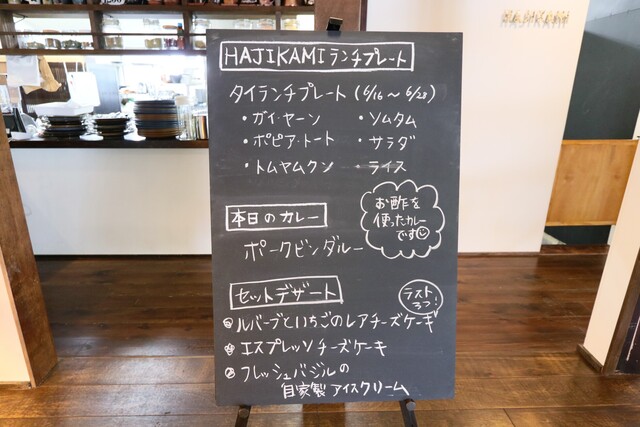 HAJIKAMIランチプレート
タイランチプレート (6/16～6/28)
・ガイ・ヤーン ・ソムタム
・ポピア・トート ・サラダ
・トムヤムクン ・ライス
本日のカレー
お酢を
使ったカレー
です
ポークビンダルー
セットデザート
ラスト
3つ!
ルバーブといちごのレアチーズケーキ
エスプレッソチーズケーキ
フレッシュバジルの
自家製アイスクリーム